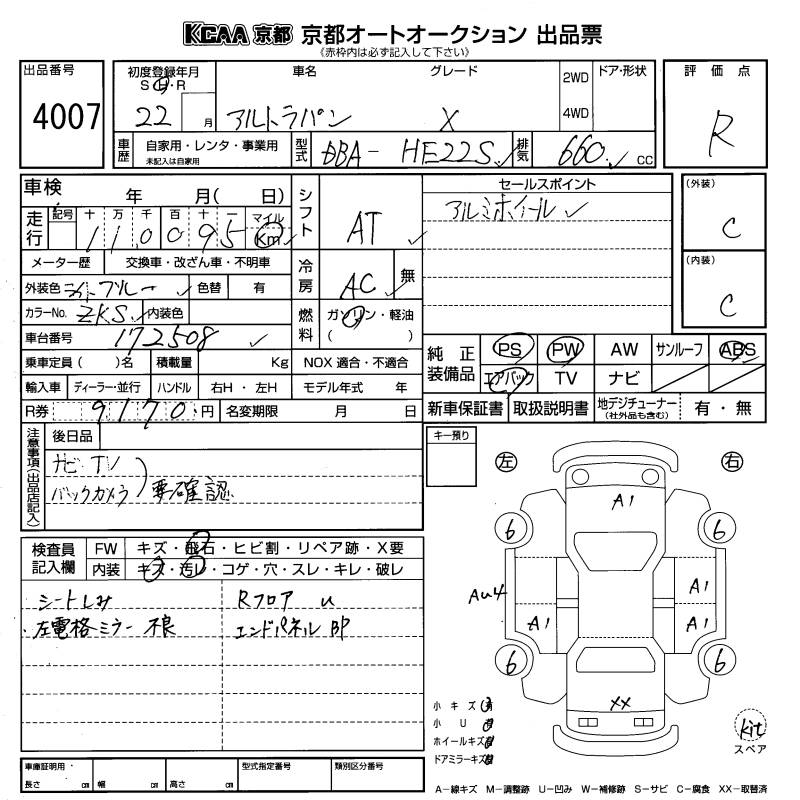 KCAA 京都 京都オートオークション 出品票
《赤枠内は必ず記入して下さい》
出品番号
4007
初度登録年月
S H・R
22 月
車名
アルトラパン
グレード
X
2WD
4WD
ドア・形状
評価点
R
車歴
自家用・レンタ・事業用
未記入は自家用
型式
DBA- HE22S
排気
660 cc
車検 年 月( 日)
走行
記号 十 万 千 百 十 一 マイル
110095 Km
メーター歴 交換車・改ざん車・不明車
外装色 ライトブルー 色替 有
カラーNo. ZKS 内装色
車台番号 172508
乗車定員( )名 積載量 Kg NOX 適合・不適合
輸入車 ディーラー・並行 ハンドル 右H・左H モデル年式 年
R券 9170 円 名変期限 月 日
シフト AT
冷房 AC 無
燃料 ガソリン・軽油
( )
セールスポイント
アルミホイール
(外装)
C
(内装)
C
純正装備品
PS PW AW サンルーフ ABS
エアバック TV ナビ
新車保証書 取扱説明書 地デジチューナー(社外品も含む) 有・無
注意事項(出品店記入)
後日品
ナビ・TV
バックカメラ
要確認
キー預り
検査員記入欄
FW キズ・飛石・ヒビ割・リペア跡・X要
内装 キズ・汚レ・コゲ・穴・スレ・キレ・破レ
シートしみ Rフロア u
・左電格ミラー不良 エンドパネル BP
左 右
A1
6 6
Au4
A1
A1 A1
6 6
XX
小キズ 有
小 U
ホイールキズ
ドアミラーキズ
kit
スペア
車庫証明用・
長さ cm 幅 cm 高さ cm
型式指定番号
類別区分番号
A-線キズ M-調整跡 U-凹み W-補修跡 S-サビ C-腐食 XX-取替済